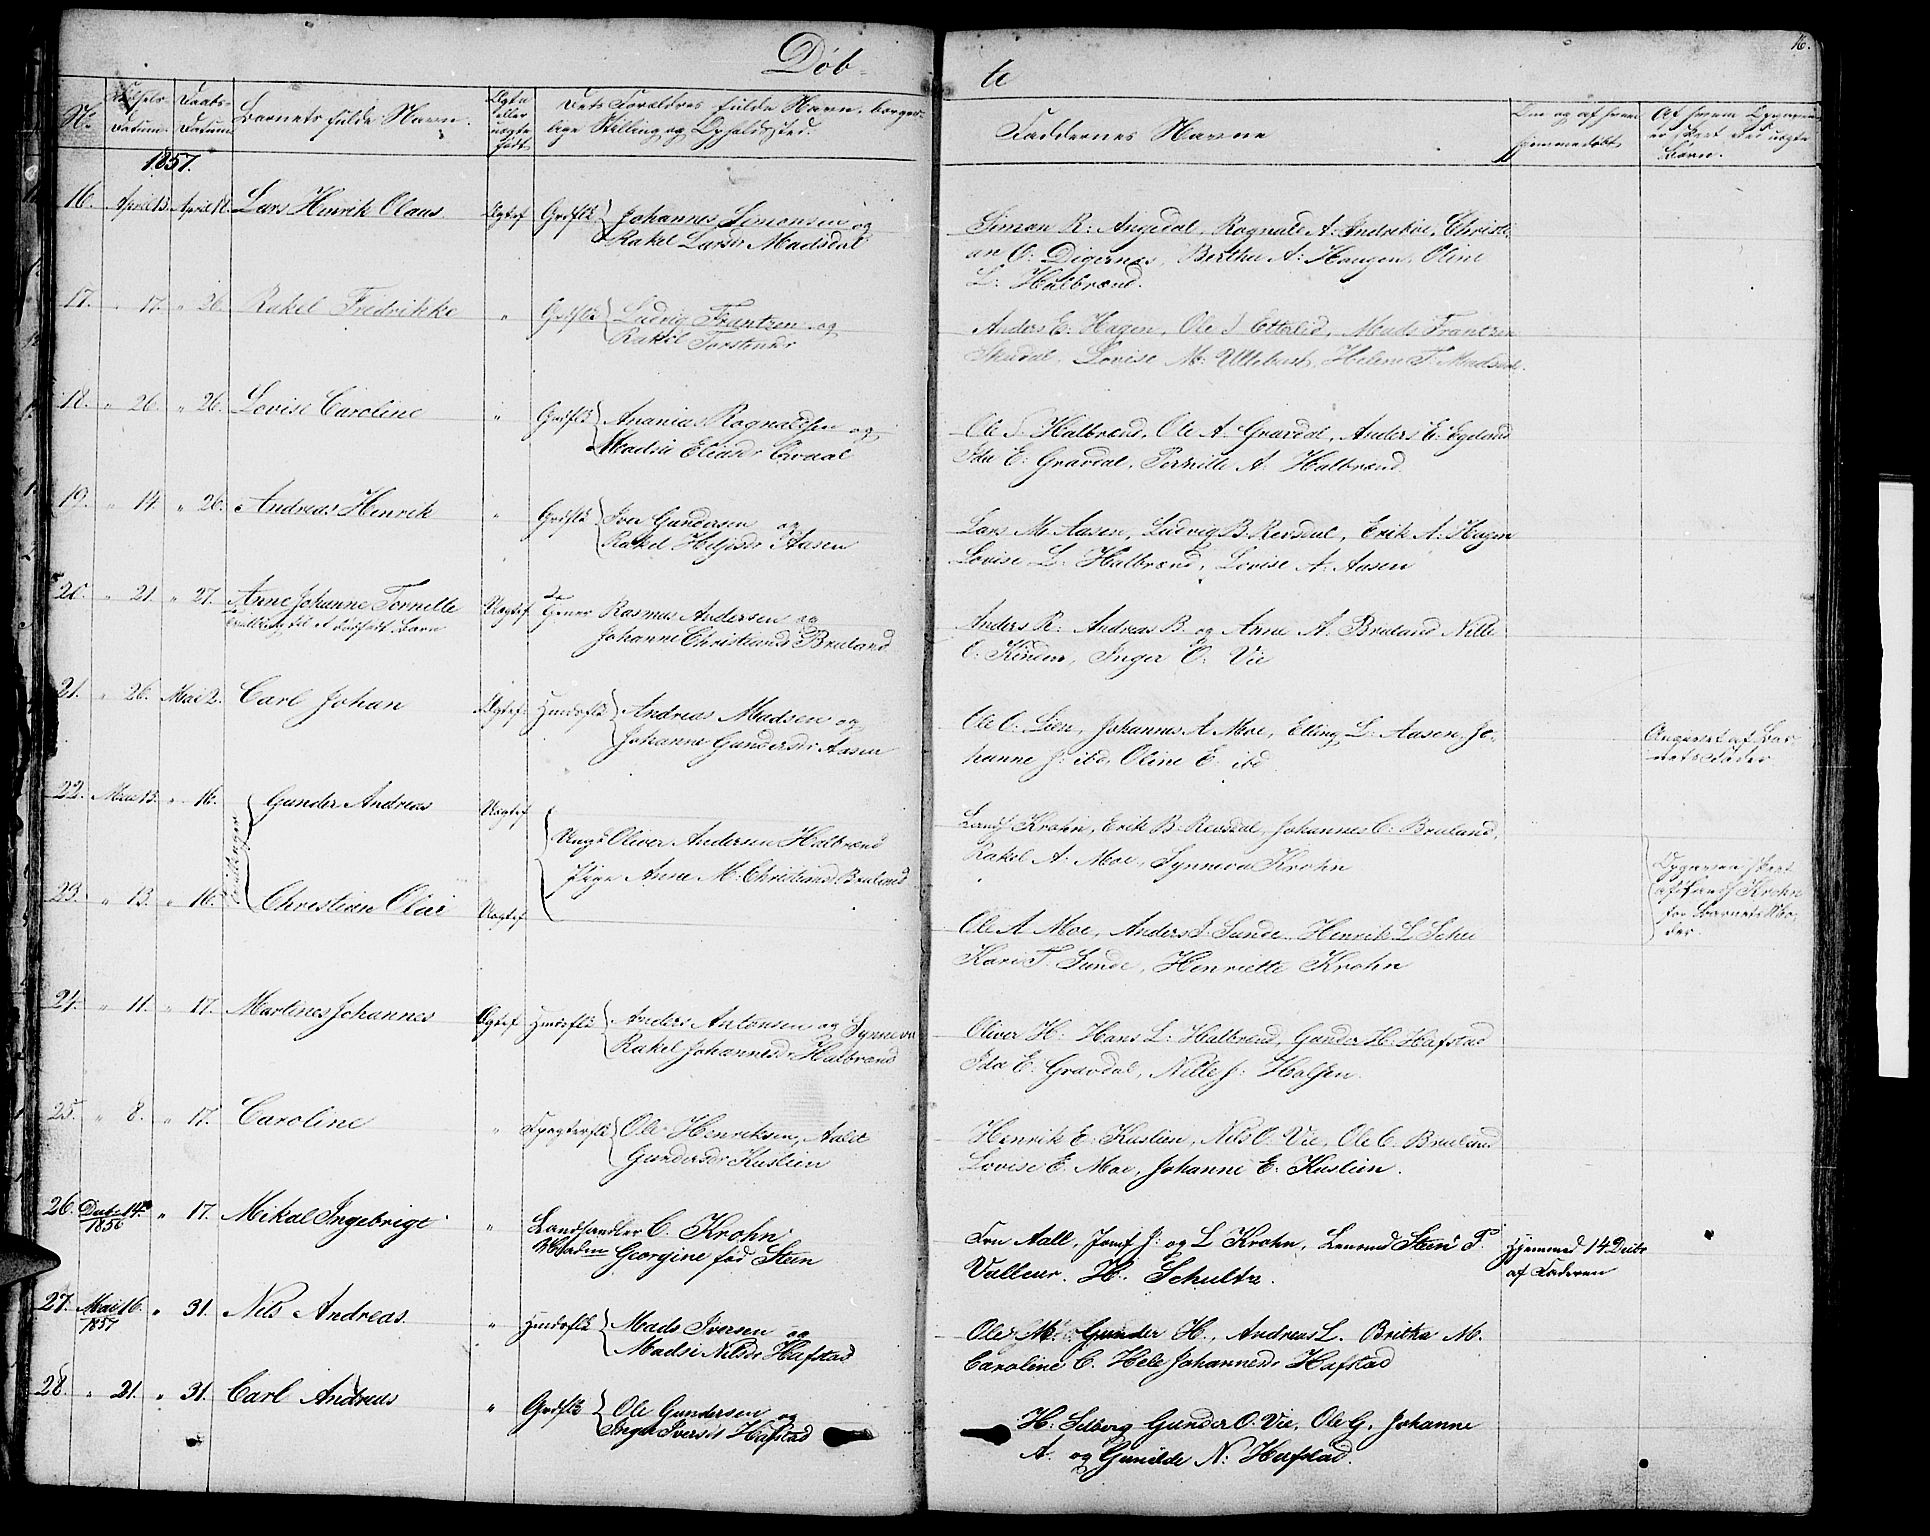 Døb-
te
16.
No
Fødsels-
Datum.
Daabs-
Datum
Barnets fulde Navn.
Ægte
eller
uægte
født
Dets Forældres fulde Navn, borger-
lige Stilling og Opholdssted.
Faddernes Navne
Om og af hvem
hjemmedøbt
Af hvem Opgaven
er skeet for uægte
Børn.
1857.
16. April 13. April Lars Henrik Olaus Ægtef Grdflk Johannes Simonsen og
Rakel Larsdr Madsdal
Simon R: Angedal, Rognald A. Indrebøe, Christi-
an O: Digernes, Berthe A: Haugen, Oline
L: Halbrend.
17. " 17. " 26. Rakel Fredrikke " Grdflk Ludvig Frantzen og
Rakel Torstensdr
Anders E: Hagen, Ole J Etterlid, Mads Frantzen
Skudal, Lovise M: Ullebust, Helene T: Madsdal.
18. " 26. " 26. Lovise Caroline " Grdflk Ananias Rognaldsen og
Madsi Eliasdr
Ole J Halbrend, Ole A. Gravdal, Anders E: Egeland
Ida E: Gravdal, Pernille A. Halbrend.
19. " 14. " 26. Andreas Henrik " Grdflk Iver Gundersen og
Rakel Aasen
Lars M. Aasen, Ludvig B. Revsdal, Erik A: Hagen
Lovise L: Halbrend, Lovise A. Aasen
20. " 21. " 27. Anne Johanne Tornelle Uægtef Rasmus Andersen og
Tvilling til et dødfødt Barn
Johanne Christiansdr Bruland
Anders R: Andreas B. og Anne A. Bruland Nille
O: Inger O: Vie
21. " 26. Mai 2. Carl Johan Ægtef Huusflk Andreas Madsen og
Johanne Gundersdr Aasen
Ole C: Lien, Johannes A Moe, Elling L: Aasen, Jo-
hanne J: ibd. Oline E. ibd
Angivet af Bar-
nets Fader
22. Mai 13. " 16. Gunder Andreas Uægtef
Ungk Oliver Andersen Halbrend
Pige Anne M. Christiansd Bruland
Tvillinger
Landh Krohn, Erik B. Revsdal, Johannes C: Bruland,
Rakel A. Moe, Synneva Krohn
Opgaven skeet
af Landh Krohn
for Barnets Mo-
der.
23. " 13. " 16. Christian Olai Uægtef
Ole A Moe, Anders J. Sunde, Henrik L
Kari T. Sunde, Henriette Krohn
24. " 11. " 17. Martines Johannes Ægtef Huusflk Anders Antonsen og Synneva
Rakel Johannesdr Halbrend
Oliver H: Hans L: Halbrend, Gunder H: Hafstad
Ida E. Gravdal, Nille J: Halsen.
25. " 8. " 17. Caroline " Ole Henriksen, Aalet
Gundersdr Kuslien
Henrik E. Kuslien, Nils O. Vie, Ole C. Bruland
Lovise E. Moe, Johanne E. Kuslien.
26. Decbr 14. " 17. Mikal Ingebrigt " Landhandler C. Krohn
1856
Madm Georgine fød Stein
Fru Aall, Josef J: og L Krohn, Stein T.
Valleur. H. Schultz.
Hjemmed 14 Decbr
af Faderen
27. Mai 16. " 31. Nils Andreas. " Huusflk Mads Iversen og
1857
Madsi Nilsdr Hafstad
Ole M: Gunder H., Andreas L. Brithe M.
Caroline C. Hele Johannesdr Hafstad
28. " 21. " 31. Carl Andreas " Grdflk Ole Gundersen og
Inger Iversdr Hafstad
H: Selberg Gunder O. Vie, Ole G, Johanne
A. og Gunilde N: Hafstad.